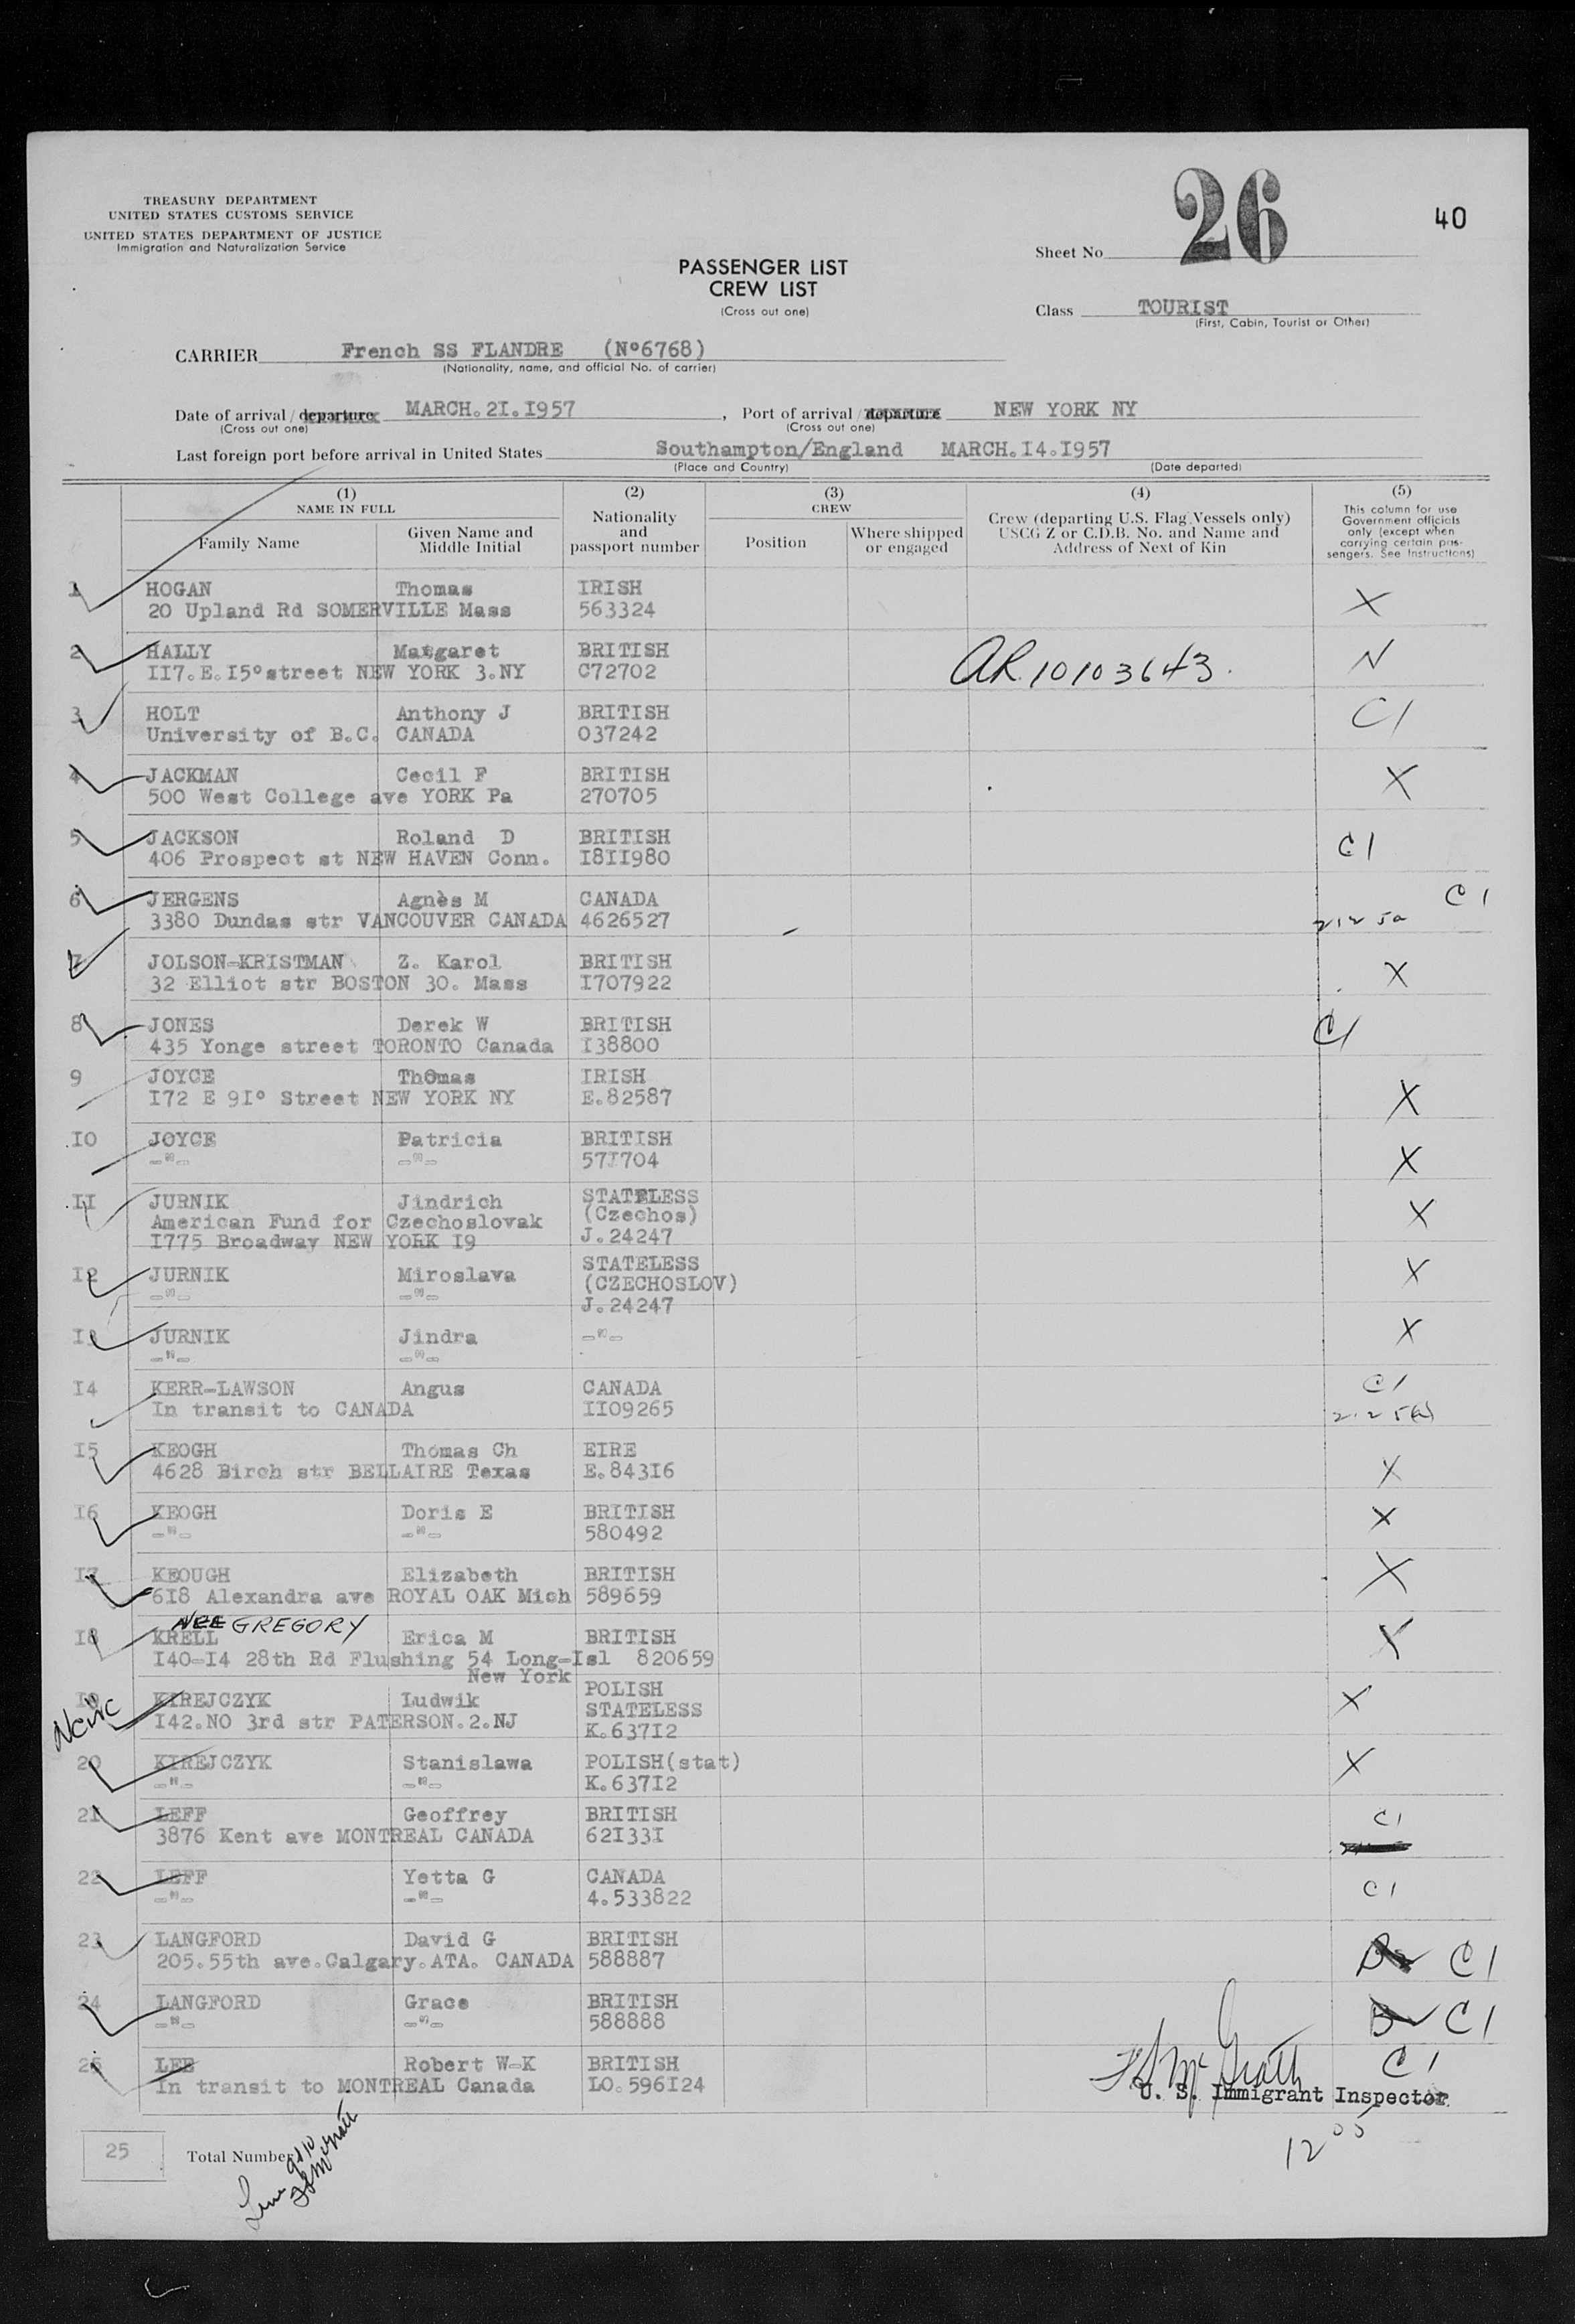 26
40
TREASURY DEPARTMENT
UNITED STATES CUSTOMS SERVICE
UNITED STATES DEPARTMENT OF JUSTICE
Immigration and Naturalization Service
Sheet No
PASSENGER LIST
CREW LIST
(Cross out one)
Class TOURIST
(First, Cabin, Tourist or Other)
CARRIER French SS FLANDRE (Nº6768)
(Nationality, name, and official No. of carrier)
Date of arrival / departure MARCH.2I.I957, Port of arrival / departure NEW YORK NY
(Cross out one) (Cross out one)
Last foreign port before arrival in United States Southampton/England MARCH.I4.I957
(Place and Country) (Date departed)
(1) NAME IN FULL
Family Name
Given Name and Middle Initial
(2) Nationality and passport number
(3) CREW
Position
Where shipped or engaged
(4) Crew (departing U.S. Flag Vessels only) USCG Z or C.D.B. No. and Name and Address of Next of Kin
(5) This column for use Government officials only (except when carrying certain passengers. See Instructions)
1 HOGAN Thomas IRISH X
20 Upland Rd SOMERVILLE Mass 563324
2 HALLY Margaret BRITISH AR.10103643. N
II7.E.I5º street NEW YORK 3.NY C72702
3 HOLT Anthony J BRITISH C1
University of B.C. CANADA 037242
4 JACKMAN Cecil F BRITISH X
500 West College ave YORK Pa 270705
5 JACKSON Roland D BRITISH C1
406 Prospect st NEW HAVEN Conn. I8II980
6 JERGENS Agnès M CANADA C1
3380 Dundas str VANCOUVER CANADA 4626527 212 5a
7 JOLSON-KRISTMAN Z. Karol BRITISH X
32 Elliot str BOSTON 30. Mass I707922
8 JONES Derek W BRITISH C1
435 Yonge street TORONTO Canada I38800
9 JOYCE Thomas IRISH X
I72 E 9Iº Street NEW YORK NY E.82587
IO JOYCE Patricia BRITISH X
-"- -"- 57I704
II JURNIK Jindrich STATELESS X
American Fund for Czechoslovak (Czechos)
I775 Broadway NEW YORK I9 J.24247
I2 JURNIK Miroslava STATELESS X
-"- -"- (CZECHOSLOV)
J.24247
I3 JURNIK Jindra -"- X
-"- -"-
I4 KERR-LAWSON Angus CANADA C1
In transit to CANADA II09265 212 5(a)
I5 KEOGH Thomas Ch EIRE X
4628 Birch str BELLAIRE Texas E.843I6
I6 KEOGH Doris E BRITISH X
-"- -"- 580492
I7 KEOUGH Elizabeth BRITISH X
6I8 Alexandra ave ROYAL OAK Mich 589659
NEE GREGORY
I8 KRELL Erica M BRITISH X
I40-I4 28th Rd Flushing 54 Long-Isl 820659
New York
I9 KIREJCZYK Ludwik POLISH X
I42.NO 3rd str PATERSON.2.NJ STATELESS
K.637I2
20 KIREJCZYK Stanislawa POLISH(stat) X
-"- -"- K.637I2
2I LEFF Geoffrey BRITISH C1
3876 Kent ave MONTREAL CANADA 62I33I
22 LEFF Yetta G CANADA C1
-"- -"- 4.533822
23 LANGFORD David G BRITISH C1
205.55th ave.Calgary.ATA. CANADA 588887
24 LANGFORD Grace BRITISH C1
-"- -"- 588888
25 LEE Robert W-K BRITISH C1
In transit to MONTREAL Canada LO.596I24
U. S. Immigrant Inspector
25 Total Number
Line 9 & 10